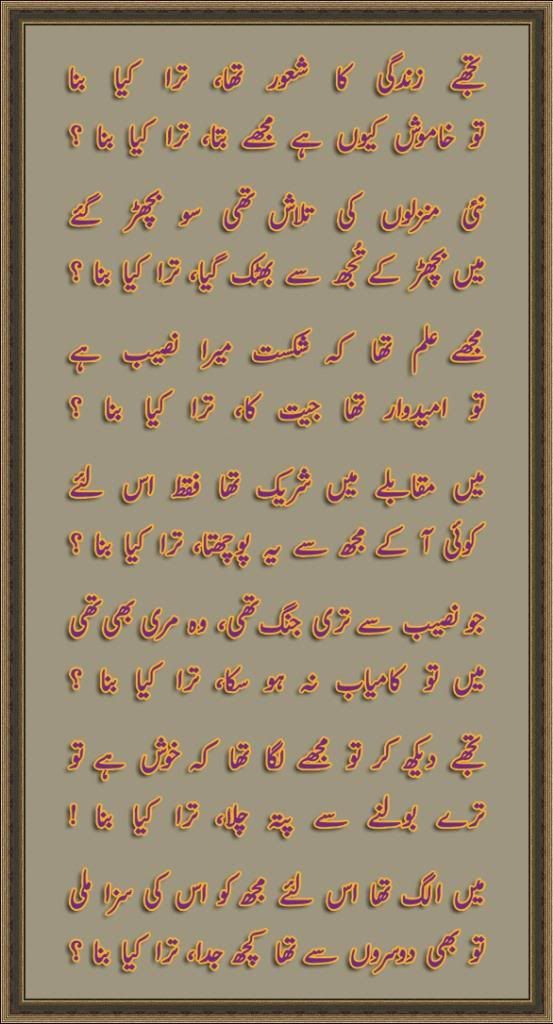 تجھے زندگی کا شعور تھا، ترا کیا بنا
تو خاموش کیوں ہے مجھے بتا، ترا کیا بنا ؟
نئی منزلوں کی تلاش تھی سو بچھڑ گئے
میں بچھڑ کے تُجھ سے بھٹک گیا، ترا کیا بنا ؟
مجھے علم تھا کہ شکست میرا نصیب ہے
تو امیدوار تھا جیت کا، ترا کیا بنا ؟
میں مقابلے میں شریک تھا فقط اس لئے
کوئی آ کے مجھ سے یہ پوچھتا، ترا کیا بنا ؟
جو نصیب سے تری جنگ تھی، وہ مری بھی تھی
میں تو کامیاب نہ ہو سکا، ترا کیا بنا ؟
تجھے دیکھ کر تو مجھے لگا تھا کہ خوش ہے تو
ترے بولنے سے پتہ چلا، ترا کیا بنا !
میں الگ تھا اس لئے مجھ کو اس کی سزا ملی
تو بھی دوسروں سے تھا کچھ جدا، ترا کیا بنا ؟